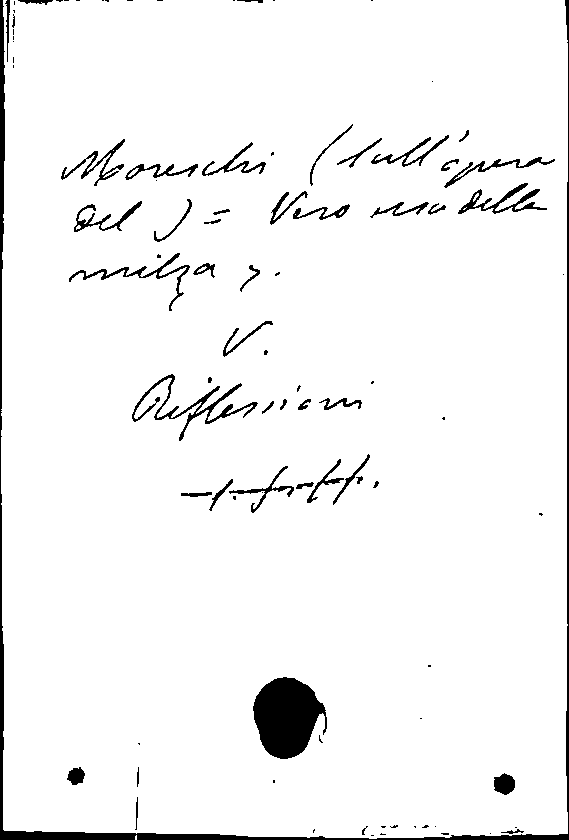 Moreschi (sull'opera
del ) = Vero uso della
milza >.
V.
Riflessioni